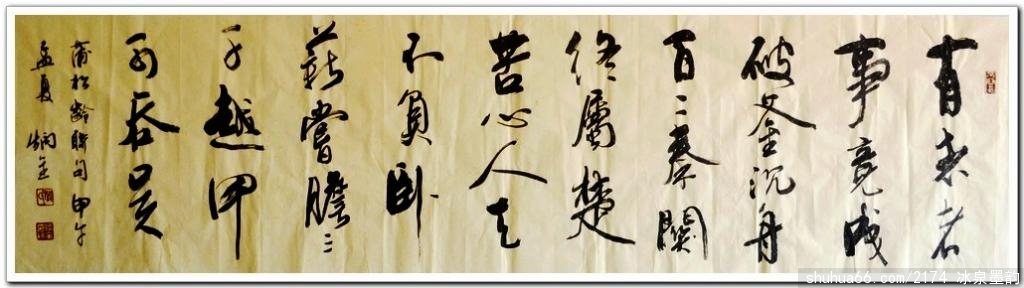 有志者
事竟成
破釜沉舟
百二秦關
終屬楚
苦心人天
不負卧
薪嘗膽三
千越甲
可吞吴
蒲松齡聯句 甲午
孟夏
shuhua66.com/2174 冰泉墨韵